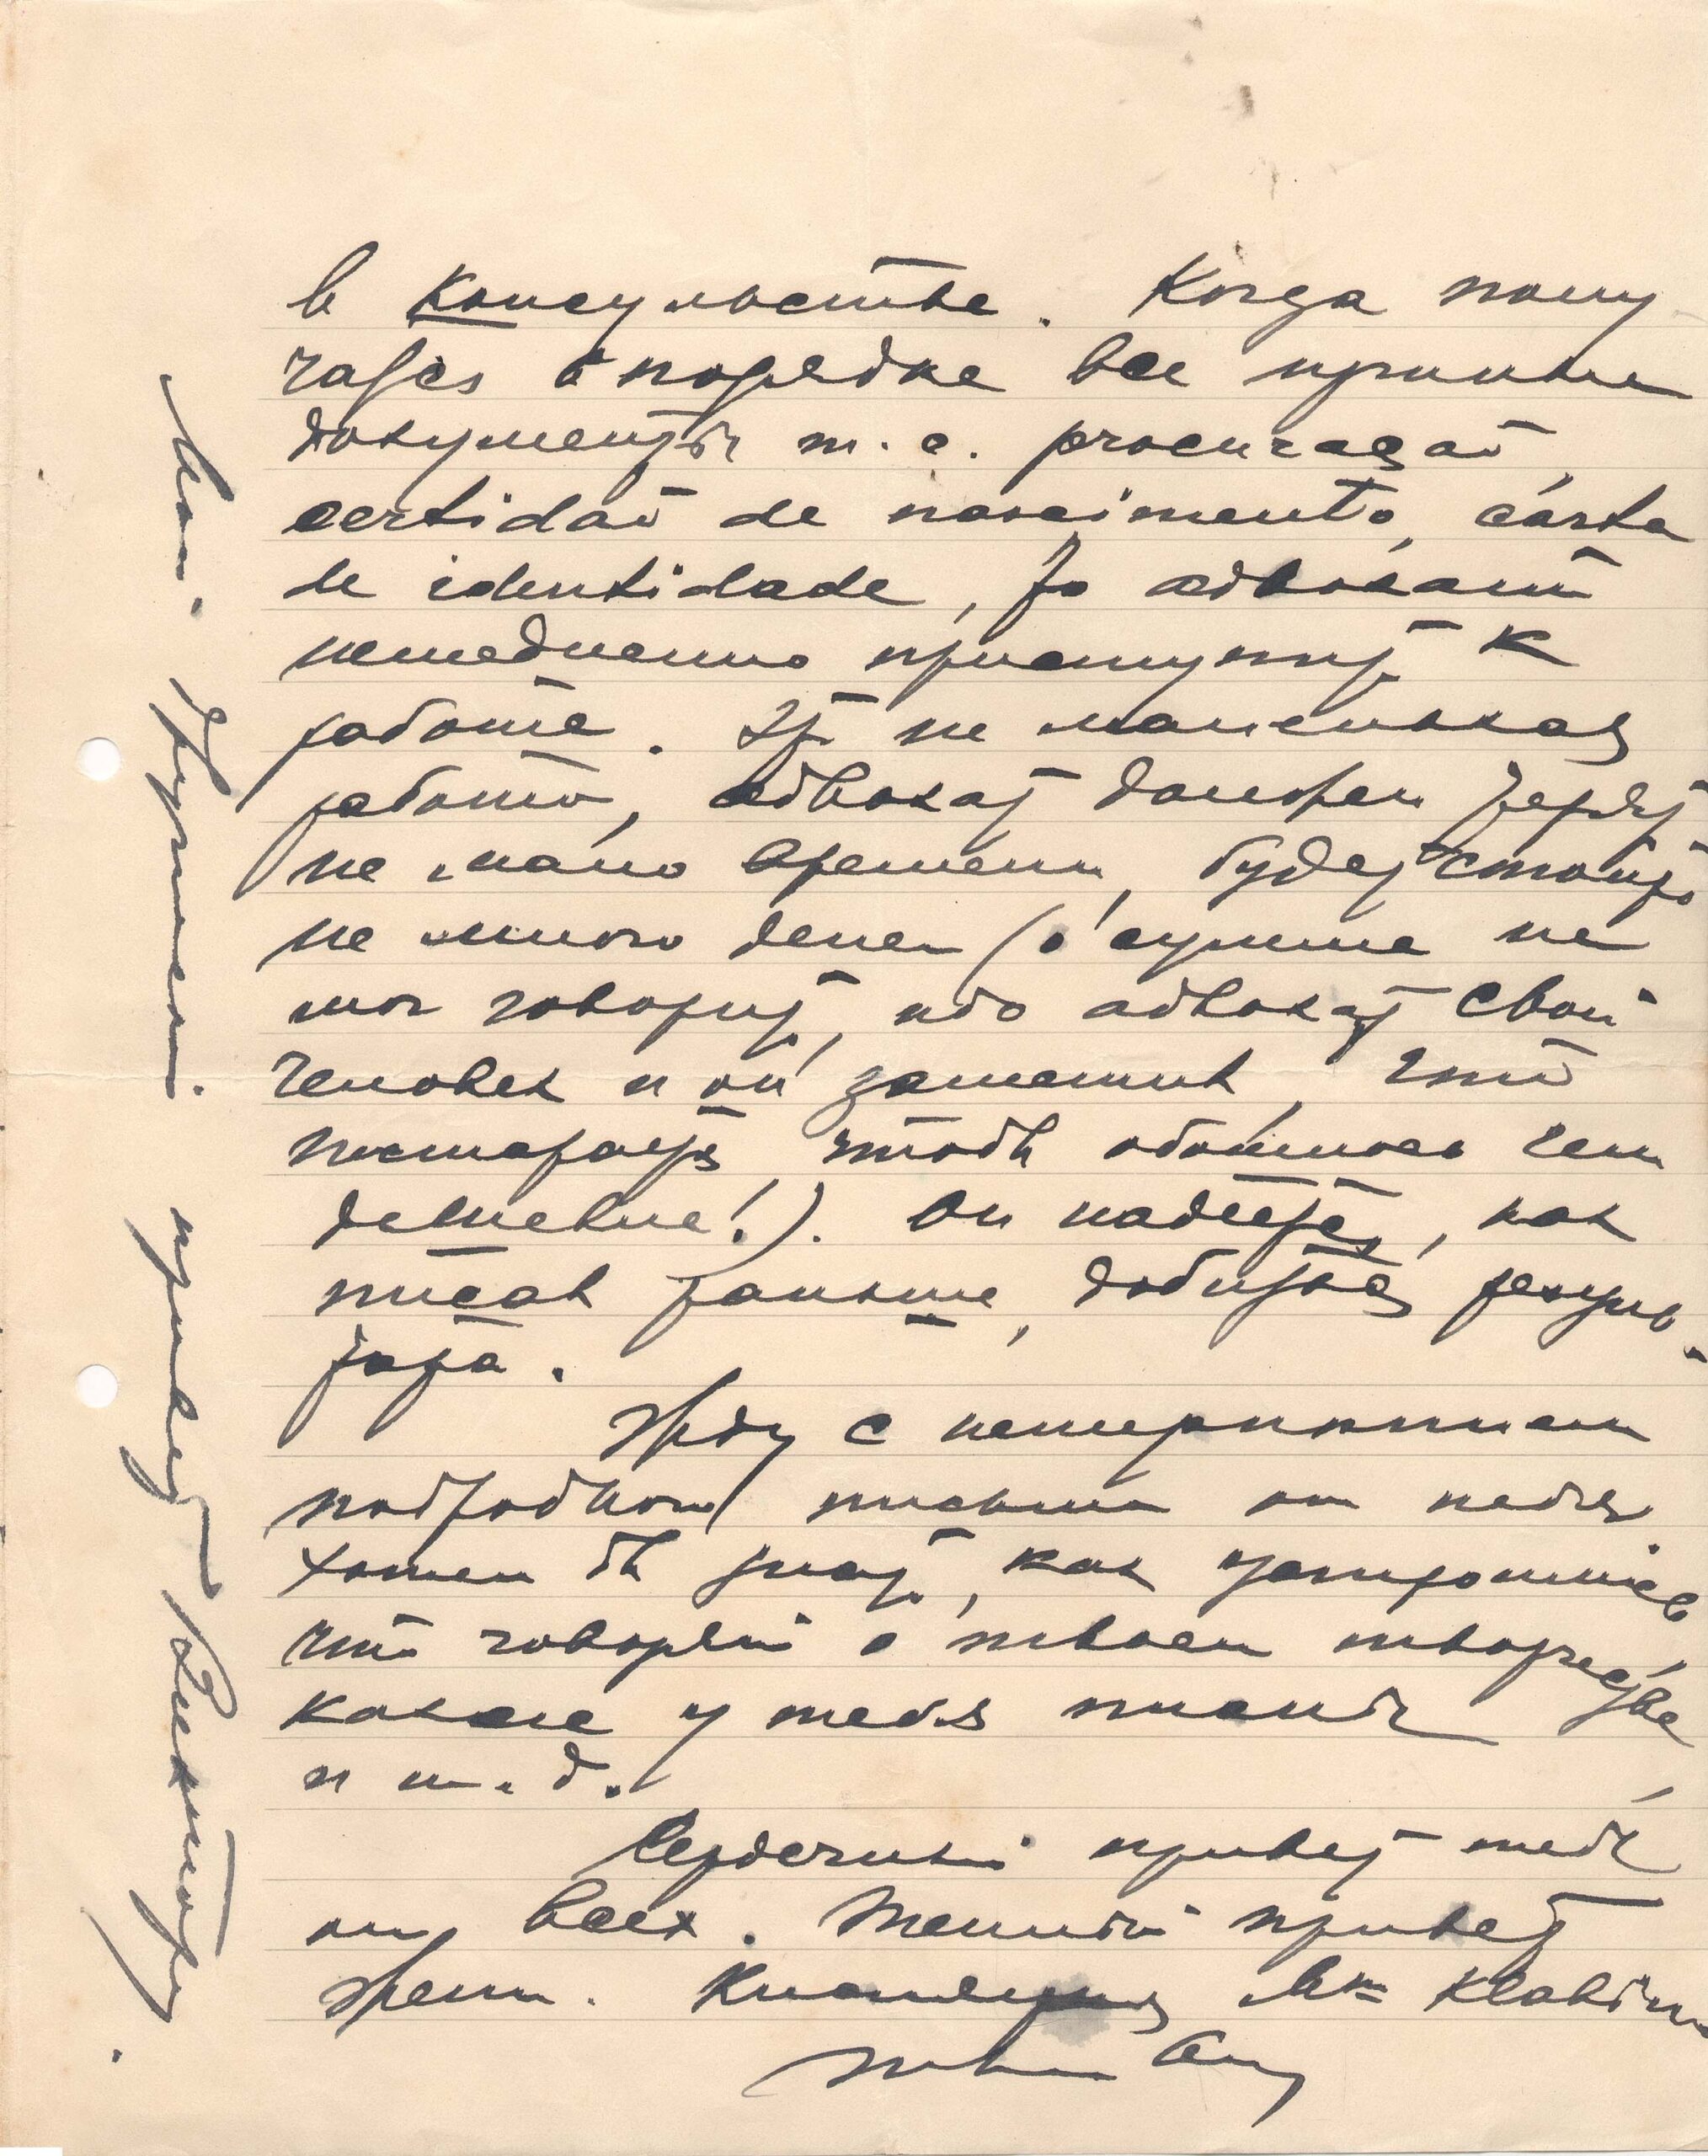 в консульстве. Когда полу
чатся в порядке все нужные
документы т. е. procuração,
certidaõ de nascimento, carta
de identidade, то адвокат
немедленно приступит к
работе. Это не маленькая
работа, адвокат должен терять
не мало времени, будет стоить
не мало денег (о сумме не
мог говорить, ибо адвокат свой
человек и он заметив, что
постарается, чтобы обошлось чем
дешевле!). Он надеется, как
писал раньше, добиться резуль-
тата.
Жду с нетерпением
подробного письма от тебя
хотел бы знать, как устроилась
что говорят о твоем творчестве
какие у тебя планы
и т. д.
Сердечный привет тебе
от всех. Теплый привет
Кланяется M<sup>me</sup> Klabin
твой
Мой душевный привет Виктору.